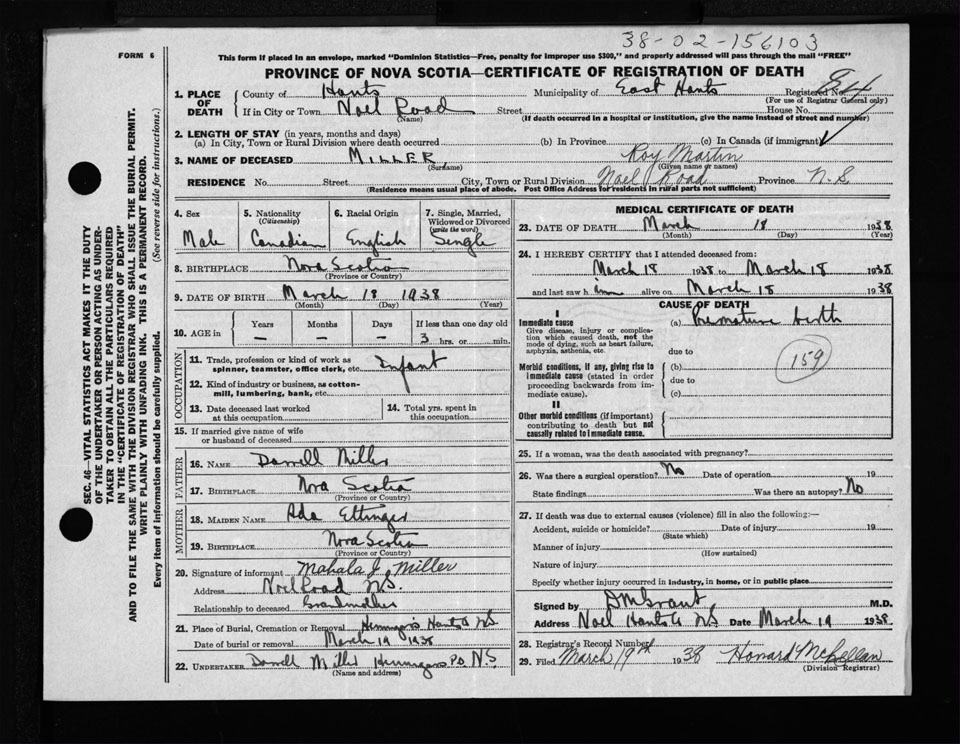 38-02-156103
FORM 6
This form if placed in an envelope, marked "Dominion Statistics—Free, penalty for improper use $300," and properly addressed will pass through the mail "FREE"
PROVINCE OF NOVA SCOTIA—CERTIFICATE OF REGISTRATION OF DEATH
1. PLACE OF DEATH
County of Hants Municipality of East Hants Registered No.
(For use of Registrar General only)
If in City or Town Noel Road Street House No.
(Name) (If death occurred in a hospital or institution, give the name instead of street and number)
2. LENGTH OF STAY (in years, months and days)
(a) In City, Town or Rural Division where death occurred (b) In Province (c) In Canada (if immigrant)
3. NAME OF DECEASED MILLER Roy Martin
(Surname) (Given name or names)
RESIDENCE No. Street City, Town or Rural Division Noel Road Province N.S
(Residence means usual place of abode. Post Office Address for residents in rural parts not sufficient)
SEC. 46—VITAL STATISTICS ACT MAKES IT THE DUTY
OF THE UNDERTAKER OR PERSON ACTING AS UNDER-
TAKER TO OBTAIN ALL THE PARTICULARS REQUIRED
IN THE "CERTIFICATE OF REGISTRATION OF DEATH"
AND TO FILE THE SAME WITH THE DIVISION REGISTRAR WHO SHALL ISSUE THE BURIAL PERMIT.
WRITE PLAINLY WITH UNFADING INK. THIS IS A PERMANENT RECORD.
Every item of information should be carefully supplied. (See reverse side for instructions.)
4. Sex
Male
5. Nationality
(Citizenship)
Canadian
6. Racial Origin
English
7. Single, Married,
Widowed or Divorced
(write the word)
Single
8. BIRTHPLACE Nova Scotia
(Province or Country)
9. DATE OF BIRTH March 18 1938
(Month) (Day) (Year)
10. AGE in
Years Months Days If less than one day old
— — — 3 hrs. or min.
OCCUPATION
11. Trade, profession or kind of work as
spinner, teamster, office clerk, etc. Infant
12. Kind of industry or business, as cotton-
mill, lumbering, bank, etc.
13. Date deceased last worked
at this occupation
14. Total yrs. spent in
this occupation
15. If married give name of wife
or husband of deceased
FATHER
16. NAME Darrell Miller
17. BIRTHPLACE Nova Scotia
(Province or Country)
MOTHER
18. MAIDEN NAME Ada Ettinger
19. BIRTHPLACE Nova Scotia
(Province or Country)
20. Signature of informant Mahala J. Miller
Address Noel Road NS
Relationship to deceased Grandmother
21. Place of Burial, Cremation or Removal Hants NS
Date of burial or removal March 19 1938
22. UNDERTAKER Darrell Miller P.O. N.S
(Name and address)
MEDICAL CERTIFICATE OF DEATH
23. DATE OF DEATH March 18 1938
(Month) (Day) (Year)
24. I HEREBY CERTIFY that I attended deceased from:
March 18 1938 to March 18 1938
and last saw him alive on March 18 1938
CAUSE OF DEATH
I
Immediate cause
Give disease, injury or complica-
tion which caused death, not the
mode of dying, such as heart failure,
asphyxia, asthenia, etc.
(a) Premature birth
due to
159
Morbid conditions, if any, giving rise to
immediate cause (stated in order
proceeding backwards from im-
mediate cause).
(b)
due to
(c)
II
Other morbid conditions (if important)
contributing to death but not
causally related to immediate cause.
25. If a woman, was the death associated with pregnancy?
26. Was there a surgical operation? No Date of operation 19
State findings Was there an autopsy? No
27. If death was due to external causes (violence) fill in also the following:—
Accident, suicide or homicide? Date of injury 19
(State which)
Manner of injury
(How sustained)
Nature of injury
Specify whether injury occurred in industry, in home, or in public place
Signed by DM Grant M.D.
Address Noel Hants Co NS Date March 19 1938
28. Registrar's Record Number
29. Filed March 19th 1938 Howard McLellan
(Division Registrar)